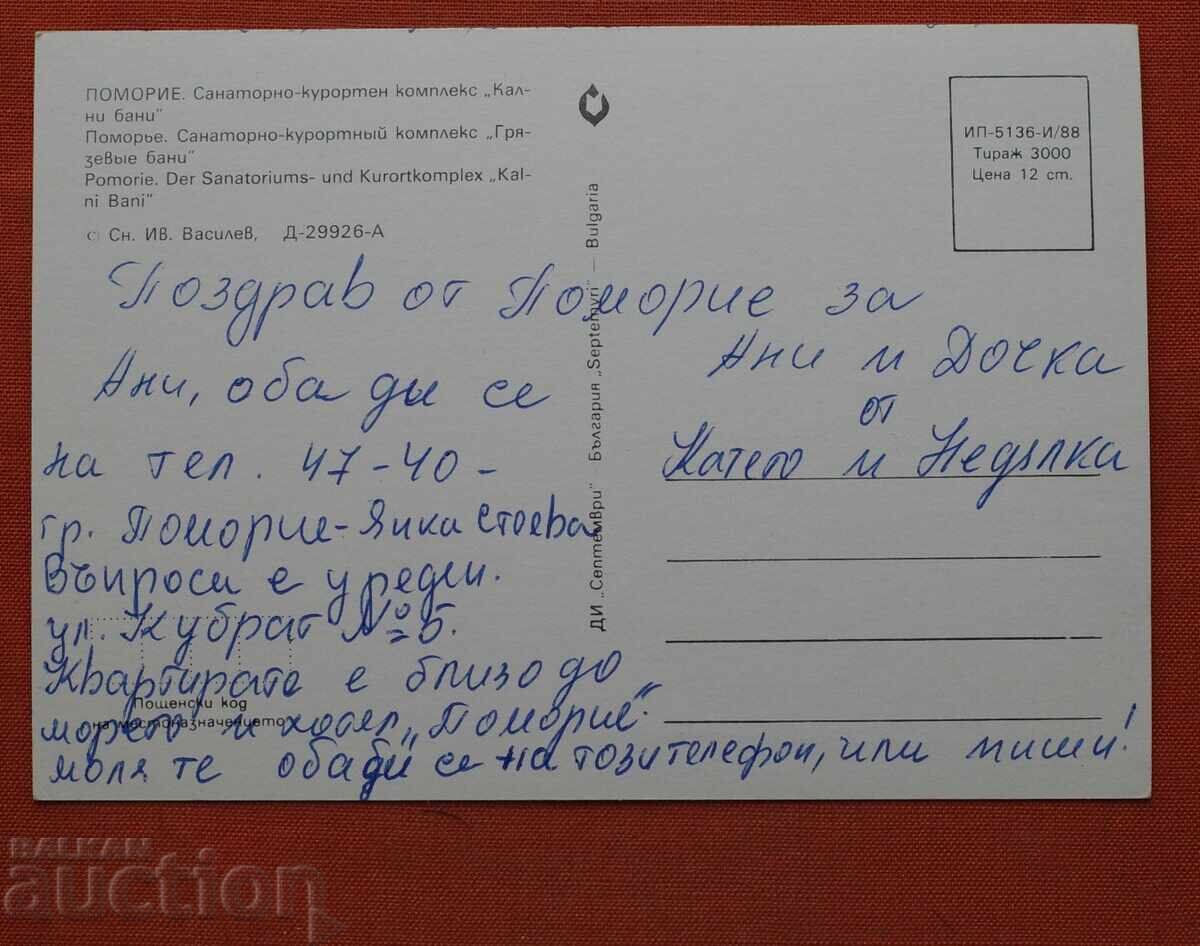 ПОМОРИЕ. Санаторно-курортен комплекс „Кал-
ни бани"
Поморье. Санаторно-курортный комплекс „Гря-
зевые бани"
Pomorie. Der Sanatoriums- und Kurortkomplex „Kal-
ni Bani"
© Сн. Ив. Василев, Д-29926-А
ИП-5136-И/88
Тираж 3000
Цена 12 ст.
ДИ „Септември" България „Septemvri" — Bulgaria
Поздрав от Поморие за
Ани и Дочка
от
Катето и Недялка
Ани, обади се
на тел. 47-40-
гр. Поморие-Янка Стоева
Въпроса е уреден.
ул. Кубрат № 5.
Квартирата е близо до
морето и хотел „Поморие".
моля те обади се на този телефон, или пиши!
Пощенски код
на местоназначението
BALKAN
auction